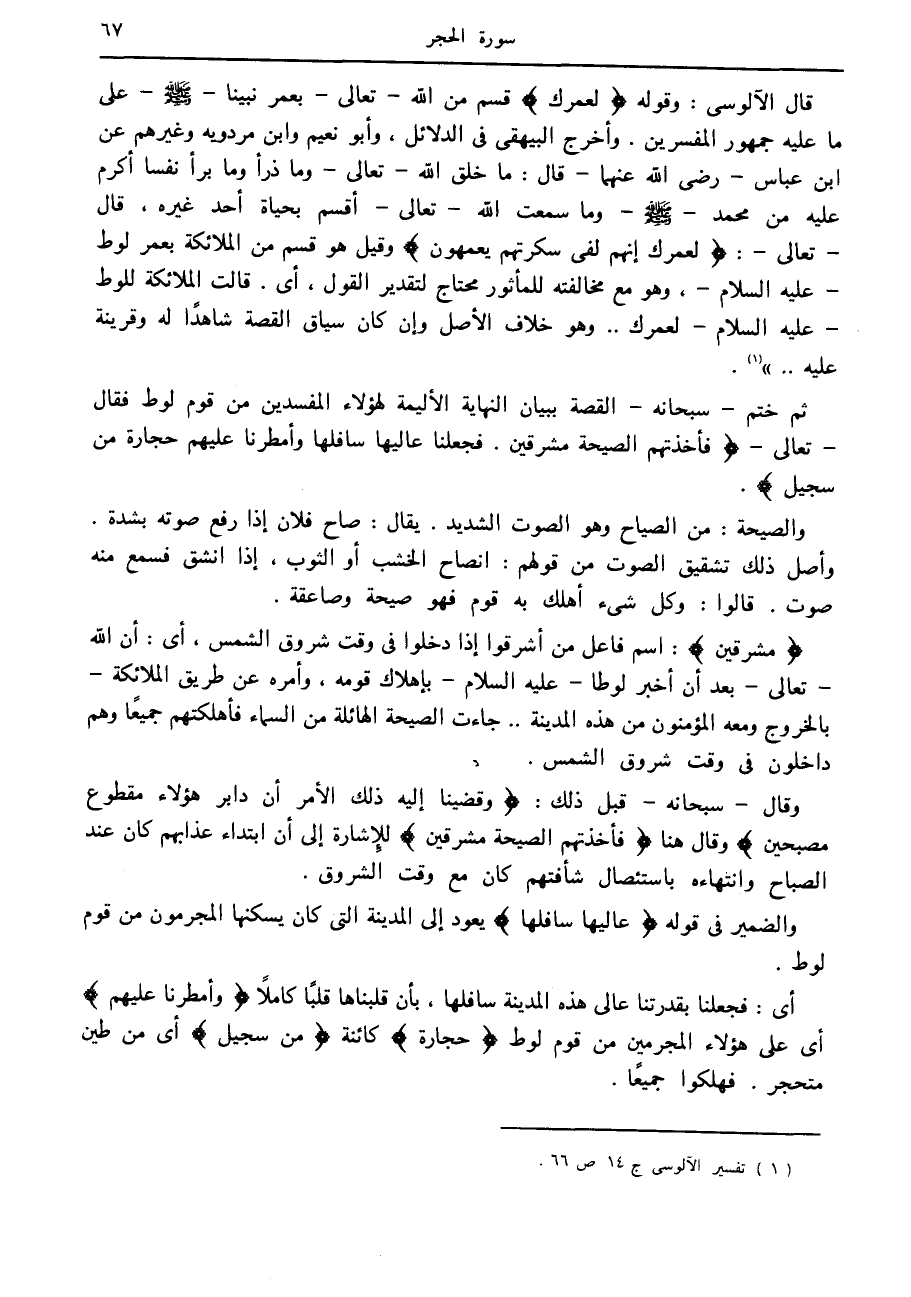 سورة الحجر
٦٧
قال الآلوسى : وقوله ﴿ لعمرك ﴾ قسم من الله - تعالى - بعمر نبينا - ﷺ - على
ما عليه جمهور المفسرين . وأخرج البيهقى فى الدلائل ، وأبو نعيم وابن مردويه وغيرهم عن
ابن عباس - رضى الله عنهما - قال : ما خلق الله - تعالى - وما ذرأ وما برأ نفسا أكرم
عليه من محمد - ﷺ - وما سمعت الله - تعالى - أقسم بحياة أحد غيره ، قال
- تعالى - : ﴿ لعمرك إنهم لفى سكرتهم يعمهون ﴾ وقيل هو قسم من الملائكة بعمر لوط
- عليه السلام - ، وهو مع مخالفته للمأثور محتاج لتقدير القول ، أى . قالت الملائكة للوط
- عليه السلام - لعمرك .. وهو خلاف الأصل وإن كان سياق القصة شاهدًا له وقرينة
عليه .. »(١) .
ثم ختم - سبحانه - القصة ببيان النهاية الأليمة لهؤلاء المفسدين من قوم لوط فقال
- تعالى - ﴿ فأخذتهم الصيحة مشرقين . فجعلنا عاليها سافلها وأمطرنا عليهم حجارة من
سجيل ﴾ .
والصيحة : من الصياح وهو الصوت الشديد . يقال : صاح فلان إذا رفع صوته بشدة .
وأصل ذلك تشقيق الصوت من قولهم : انصاح الخشب أو الثوب ، إذا انشق فسمع منه
صوت . قالوا : وكل شىء أهلك به قوم فهو صيحة وصاعقة .
﴿ مشرقين ﴾ : اسم فاعل من أشرقوا إذا دخلوا فى وقت شروق الشمس ، أى : أن الله
- تعالى - بعد أن أخبر لوطا - عليه السلام - بإهلاك قومه ، وأمره عن طريق الملائكة -
بالخروج ومعه المؤمنون من هذه المدينة .. جاءت الصيحة الهائلة من السماء فأهلكتهم جميعًا وهم
داخلون فى وقت شروق الشمس .
وقال - سبحانه - قبل ذلك : ﴿ وقضينا إليه ذلك الأمر أن دابر هؤلاء مقطوع
مصبحين ﴾ وقال هنا ﴿ فأخذتهم الصيحة مشرقين ﴾ للإشارة إلى أن ابتداء عذابهم كان عند
الصباح وانتهاءه باستئصال شأفتهم كان مع وقت الشروق .
والضمير فى قوله ﴿ عاليها سافلها ﴾ يعود إلى المدينة التى كان يسكنها المجرمون من قوم
لوط .
أى : فجعلنا بقدرتنا عالى هذه المدينة سافلها ، بأن قلبناها قلبًا كاملًا ﴿ وأمطرنا عليهم ﴾
أى على هؤلاء المجرمين من قوم لوط ﴿ حجارة ﴾ كائنة ﴿ من سجيل ﴾ أى من طين
متحجر . فهلكوا جميعًا .
( ١ ) تفسير الآلوسى ج ١٤ ص ٦٦ .